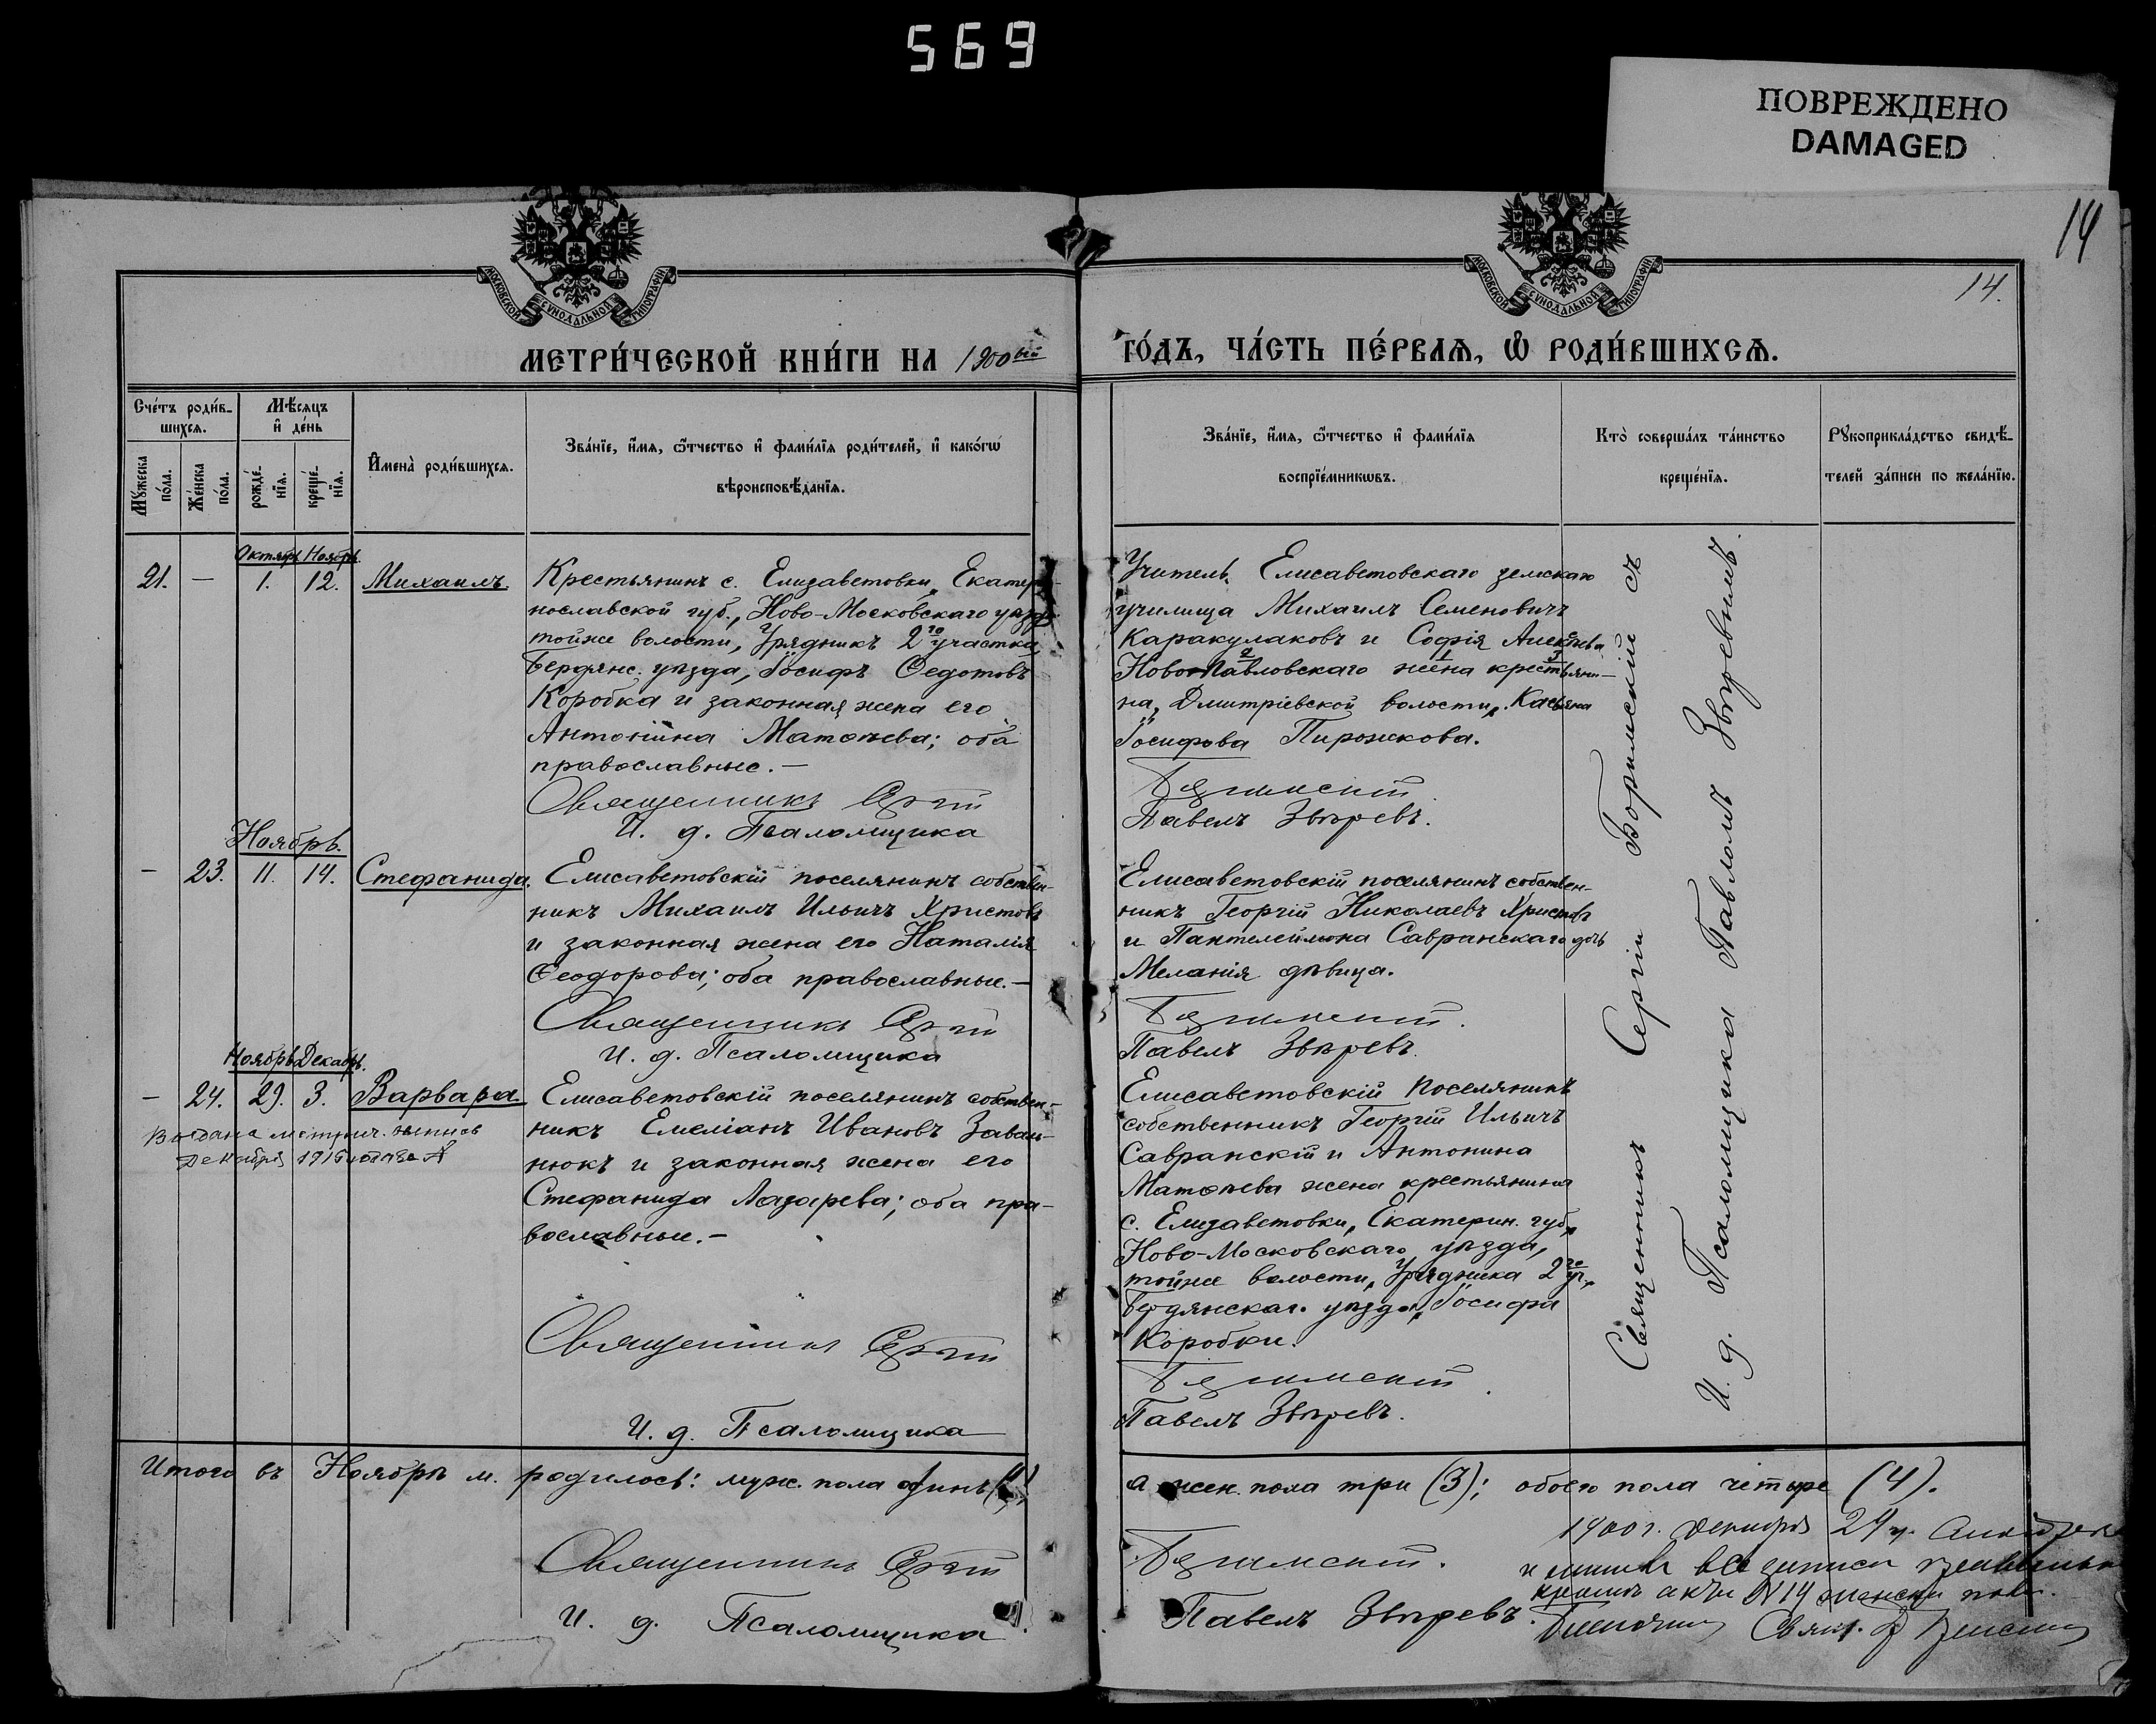 569
ПОВРЕЖДЕНО
DAMAGED
14
14.
МОСКОВСКОЙ СѴНОДАЛЬНОЙ ТИПОГРАФІИ
МОСКОВСКОЙ СѴНОДАЛЬНОЙ ТИПОГРАФІИ
МЕТРИ́ЧЕСКОЙ КНИ́ГИ НА 1900ый
ГО́ДЪ, ЧА́СТЬ ПЕ́РВАѦ, Ѽ РОДИ́ВШИХСѦ.
Сче́тъ роди́в-
шихсѧ.
Мꙋ́жеска
по́ла.
Же́нска
по́ла.
Мѣ́сѧцъ
и҆ де́нь
рожде́-
нїѧ.
креще́-
нїѧ.
И҆мена̀ роди́вшихсѧ.
Зва́нїе, и҆́мѧ, ѻ҆́тчество и҆ фами́лїѧ роди́телей, и҆ како́гѡ
вѣроисповѣ́данїѧ.
Зва́нїе, и҆́мѧ, ѻ҆́тчество и҆ фами́лїѧ
воспрїе́мникѡвъ.
Кто̀ соверша́лъ та́инство
креще́нїѧ.
Рꙋкоприкла́дство свидѣ́-
телей за́писи по жела́нїю.
Октябрь Ноябрь
21. — 1. 12. Михаилъ
Крестьянинъ с. Елизаветовки, Екатери-
нославской губ., Ново-Московскаго уѣзда
тойже волости, Урядникъ 2го участка
Бердянс. уѣзда, Іосифъ Ѳедотовъ
Коробка и законная жена его
Антонина Матѳѣева; оба
православные.—
Священникъ Сергій
И. д. Псаломщика
Учитель Елисаветовскаго земскаго
училища Михаилъ Семеновичъ
Каракулаковъ и Софія Алексѣева
Ново-Павловскаго жена крестьяни-
на, Дмитріевской волости, Касьяна
Іосифова Пирожкова.
Боримскій.
Павелъ Звѣревъ.
Ноябрь.
— 23. 11. 14. Стефанида.
Елисаветовскій поселянинъ собствен-
никъ Михаилъ Ильичъ Христовъ
и законная жена его Наталія
Ѳеодорова; оба православные.—
Священникъ Сергій
И. д. Псаломщика
Елисаветовскій поселянинъ собствен-
никъ Георгій Николаевъ Христовъ
и Пантелеймона Савранскаго дочь
Меланія дѣвица.
Боримскій.
Павелъ Звѣревъ.
Ноябрь Декабрь.
— 24. 29. 3. Варвара.
Выдана метрич. выпись
Декабря
Елисаветовскій поселянинъ собствен-
никъ Емеліанъ Ивановъ Заваль-
нюкъ и законная жена его
Стефанида Лазарева; оба пра-
вославные.—
Священникъ Сергій
И. д. Псаломщика
Елисаветовскій поселянинъ
собственникъ Георгій Ильичъ
Савранскій и Антонина
Матѳѣева жена крестьянина
с. Елизаветовки, Екатерин. губ.,
Ново-Московскаго уѣзда,
тойже волости, Урядника 2го уч.,
Бердянскаг. уѣзда, Іосифа
Коробки.
Боримскій.
Павелъ Звѣревъ.
Священникъ Сергій Боримскій съ
И. д. Псаломщика Павломъ Звѣревымъ.
Итого въ Ноябрѣ м. родилось: муж. пола одинъ (1)
а жен. пола три (3); обоего пола четыре (4).
Священникъ Сергій
И. д. Псаломщика
Боримскій.
Павелъ Звѣревъ.
1900 г. Декабря
все записи
кромѣ акта №14 женск. пола.
Свящ.